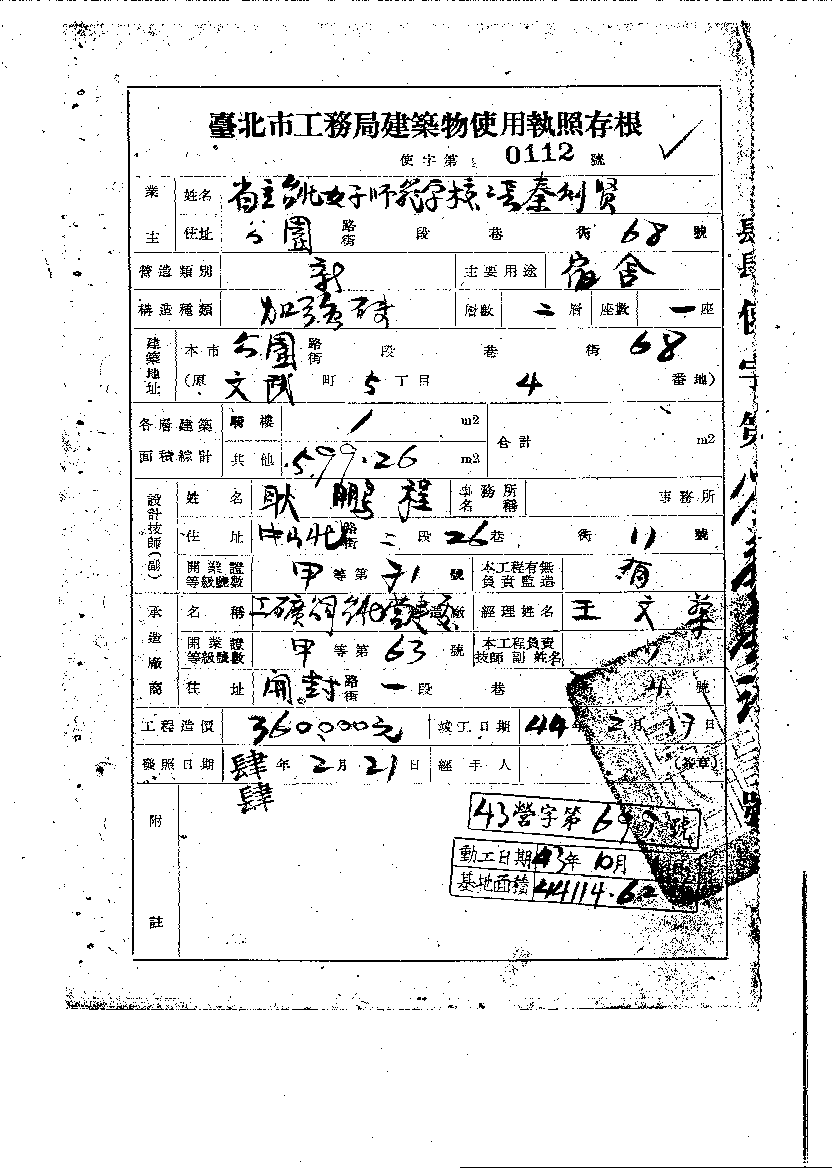 臺北市工務局建築物使用執照存根
使字第 0112 號
業主 姓名 省立台北女子師範學校 長秦利賢
住址 公園 路街 段 巷 街 68 號
營造類別 新 主要用途 宿舍
構造種類 加強磚 層數 二 層 座數 一 座
建築地址 本市 公園 路街 段 巷 街 68
(原 文武 町 5 丁目 4 番地)
各層建築面積綜計 騎樓 / m2 合計 m2
其他 599.26 m2
設計技師(副) 姓名 耿鵬程 事務所名稱 事務所
住址 中山北 路街 二 段 26 巷 街 11 號
開業證等級號數 甲 等第 71 號 本工程有無負責監造 有
承造廠商 名稱 工礦 經理姓名 王文
開業證等級號數 甲 等第 63 號 本工程負責技師副姓名
住址 開封 路街 一 段 巷 4 號
工程造價 360,000元 竣工日期 44 年 2 月 17 日
發照日期 肆肆 年 2 月 21 日 經手人 (簽章)
43營字第 號
動工日期 43年 10月
基地面積 44114.62
附註